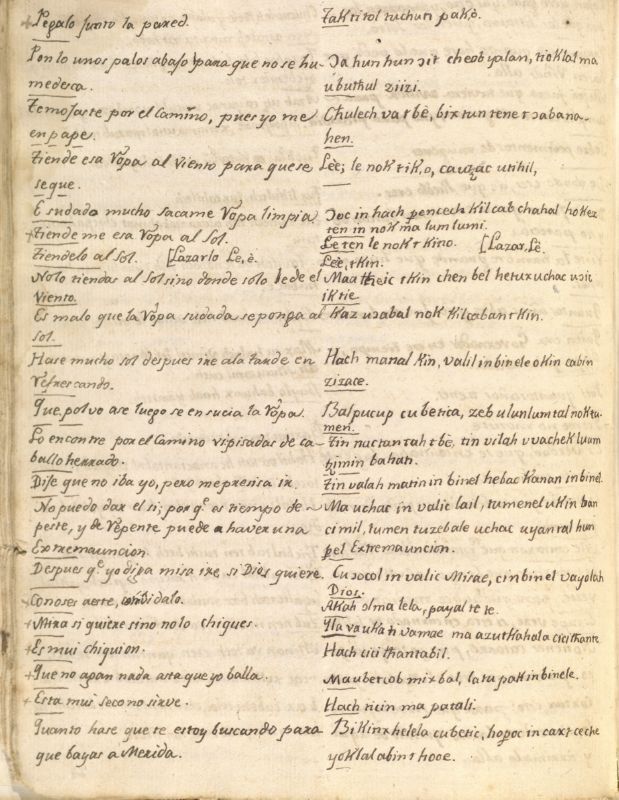 +Pegalo junto la pared.
Takti tol tuchun pakò.
Ponlo unos palos abajo para que no se hu-
medesca.
Ɔa hun hun ɔit cheob yalan, tioklal ma
u buthul ziizi.
Temojaste por el Camino, pues yo me
en pape.
Chulech va t bè, bix tun tene t ɔabana-
hen.
tiende esa Rôpa al viento para que se
seque.
Leè; le nok t ik,o, utihil,
E sudado mucho sacame Rôpa limpia
Ɔoc in hach Kilcab chahal hokez
ten in nok ma lum lumi.
+tiende me esa Rôpa al Sol.
Le ten le nok t kino. [Lazar, Lè.
tiendelo al Sol. [Lazarlo Le, è.
Leè, t kin.
No lo tiendas al Sol sino donde solo le de el
Viento.
Maa theic t kin chen bel hetux uchac uɔic
ik tie.
Es malo que la Rôpa sudada se ponga al
Sol.
Kaz uɔabal nok Kilcaban t kin.
Hase mucho sol despues ire ala tarde en
Refrescando.
Hach manal Kin, valil in binele okin cabin
zizace.
Que polvo ase luego se en sucia la Rôpa.
Balpucup cu betica, zeb u lunlumtal nok tu-
men.
Lo encontre por el Camino vi pisadas de ca-
ballo herrado.
Tin nuctantah t bè, tin vilah u vachek luum
tzimin bahan.
Dije que no iba yo, pero me presisa ir.
Tin valah matin in binel hebac Kanan in binel.
No puedo dar el si; por q.e es tiempo de
peste, y de Rêpente puede a haver una
Extremauncion.
Ma uchac in valic lail, tumenel u Kin ban
cimil, tumen tu zebale uchac u yantal hun
ppel Extremaunción.
Despues q.e yo diga misa ire, si Dios quiere.
Cu ɔocol in valic Misae, cin binel va yolah
Dios.
+Conoses aeste, convidalo.
Akah ol ma lela, payal te te.
+Mira si quiere sino no lo chiques.
Yla va u kati vamae ma a zutkahala cici thante
+Es mui chiquion.
Hach cici thantabil.
+Que no agan nada asta que yo balla.
Ma u betcob mix bal, la tu pak in binele.
+Esta mui seco no sirve.
Hach ticin ma patali.
Quanto hase que te estoy buscando para
que bayas a Merida.
Bi Kinx helela cu betic, hopoc in caxt ceche
yoklal abin t hooe.